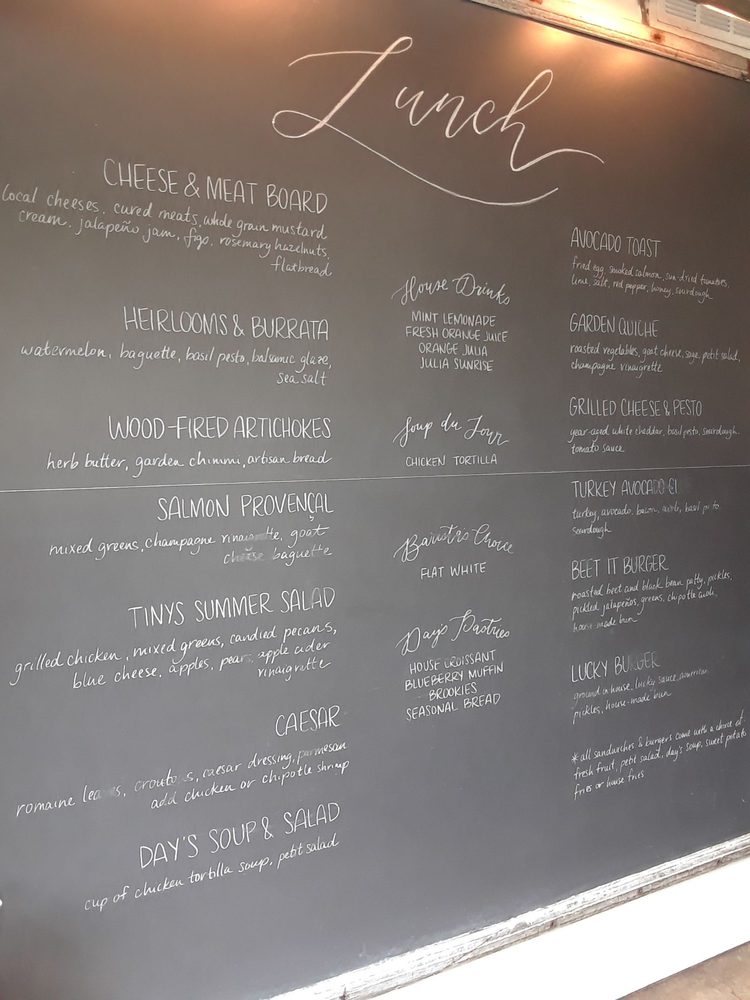 Lunch
CHEESE & MEAT BOARD
local cheeses, cured meats, whole grain mustard
cream, jalapeño jam, figs, rosemary hazelnuts,
flatbread
HEIRLOOMS & BURRATA
watermelon, baguette, basil pesto, balsamic glaze,
sea salt
WOOD-FIRED ARTICHOKES
herb butter, garden chimmi, artisan bread
SALMON PROVENÇAL
mixed greens, champagne vinaigrette, goat
cheese baguette
TINYS SUMMER SALAD
grilled chicken, mixed greens, candied pecans,
blue cheese, apples, pears, apple cider
vinaigrette
CAESAR
romaine leaves, croutons, caesar dressing, parmesan
add chicken or chipotle shrimp
DAY'S SOUP & SALAD
cup of chicken tortilla soup, petit salad
House Drinks
MINT LEMONADE
FRESH ORANGE JUICE
ORANGE JULIA
JULIA SUNRISE
Soup du Jour
CHICKEN TORTILLA
Barista's Choice
FLAT WHITE
Day's Pastries
HOUSE CROISSANT
BLUEBERRY MUFFIN
BROOKIES
SEASONAL BREAD
AVOCADO TOAST
fried egg, smoked salmon, sun-dried tomatoes,
lime, salt, red pepper, honey, sourdough
GARDEN QUICHE
roasted vegetables, goat cheese, sage, petit salad,
champagne vinaigrette
GRILLED CHEESE & PESTO
year-aged white cheddar, basil pesto, sourdough,
tomato sauce
TURKEY AVOCADO
turkey, avocado, bacon, basil pesto
sourdough
BEET IT BURGER
roasted beet and black bean patty, pickles,
pickled jalapeños, greens, chipotle aioli,
house-made bun
LUCKY BURGER
ground in house, lucky sauce, american
pickles, house-made bun
*all sandwiches & burgers come with a choice of
fresh fruit, petit salad, day's soup, sweet potato
fries or house fries